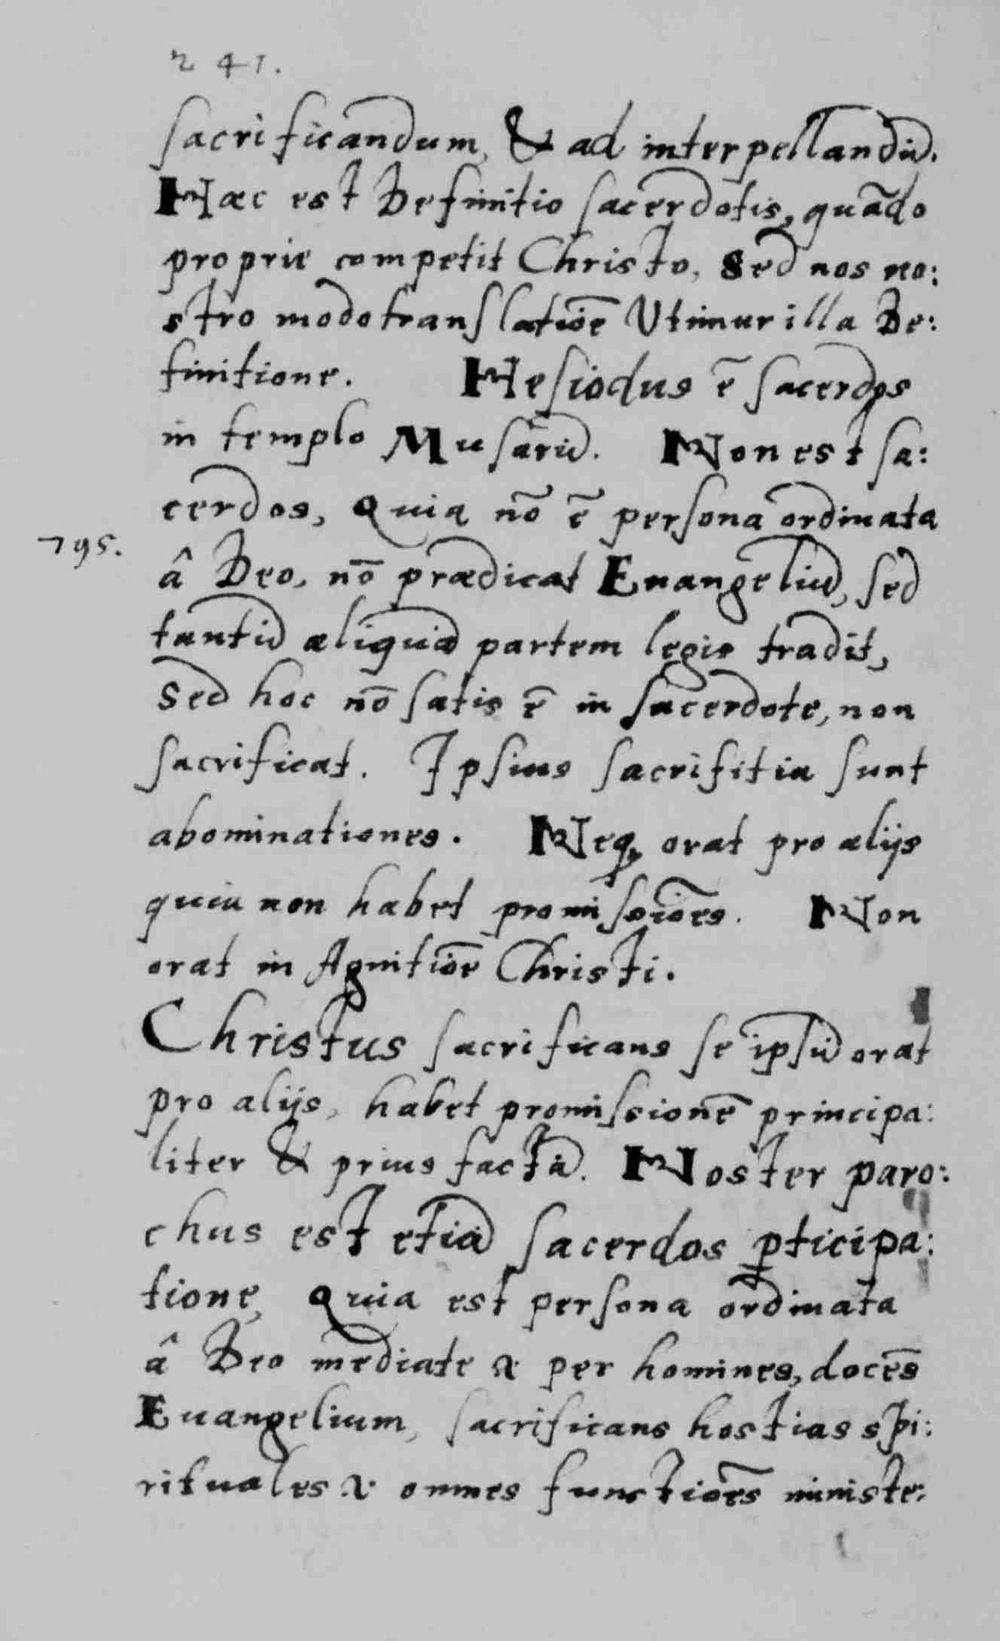 241.
sacrificandum, & ad interpellandū.
Hæc est Definitio sacerdotis, quādo
proprie competit Christo, Sed nos no:
stro modo translatiōe Utimur illa De:
finitione. Hesiodus ē sacerdos
in templo Musarū. Non est sa:
cerdos, Quia nō ē persona ordinata
795.
â Deo, nō prædicat Euangeliū, sed
tantū aliquā partem legis tradit,
Sed hoc nō satis ē in sacerdote, non
sacrificat. Ipsius sacrifitia sunt
abominationes. Neq, orat pro alijs
quia non habet promissiōes. Non
orat in Agnitiōe Christi.
Christus sacrificans se ipsū orat
pro alijs, habet promissionē principa:
liter & prius factā. Noster paro:
chus est etiā sacerdos pticipa:
tione, Quia est persona ordinata
â Deo mediate & per homines, docēs
Euangelium, sacrificans hostias spi:
rituales & omnes functiōes ministe: